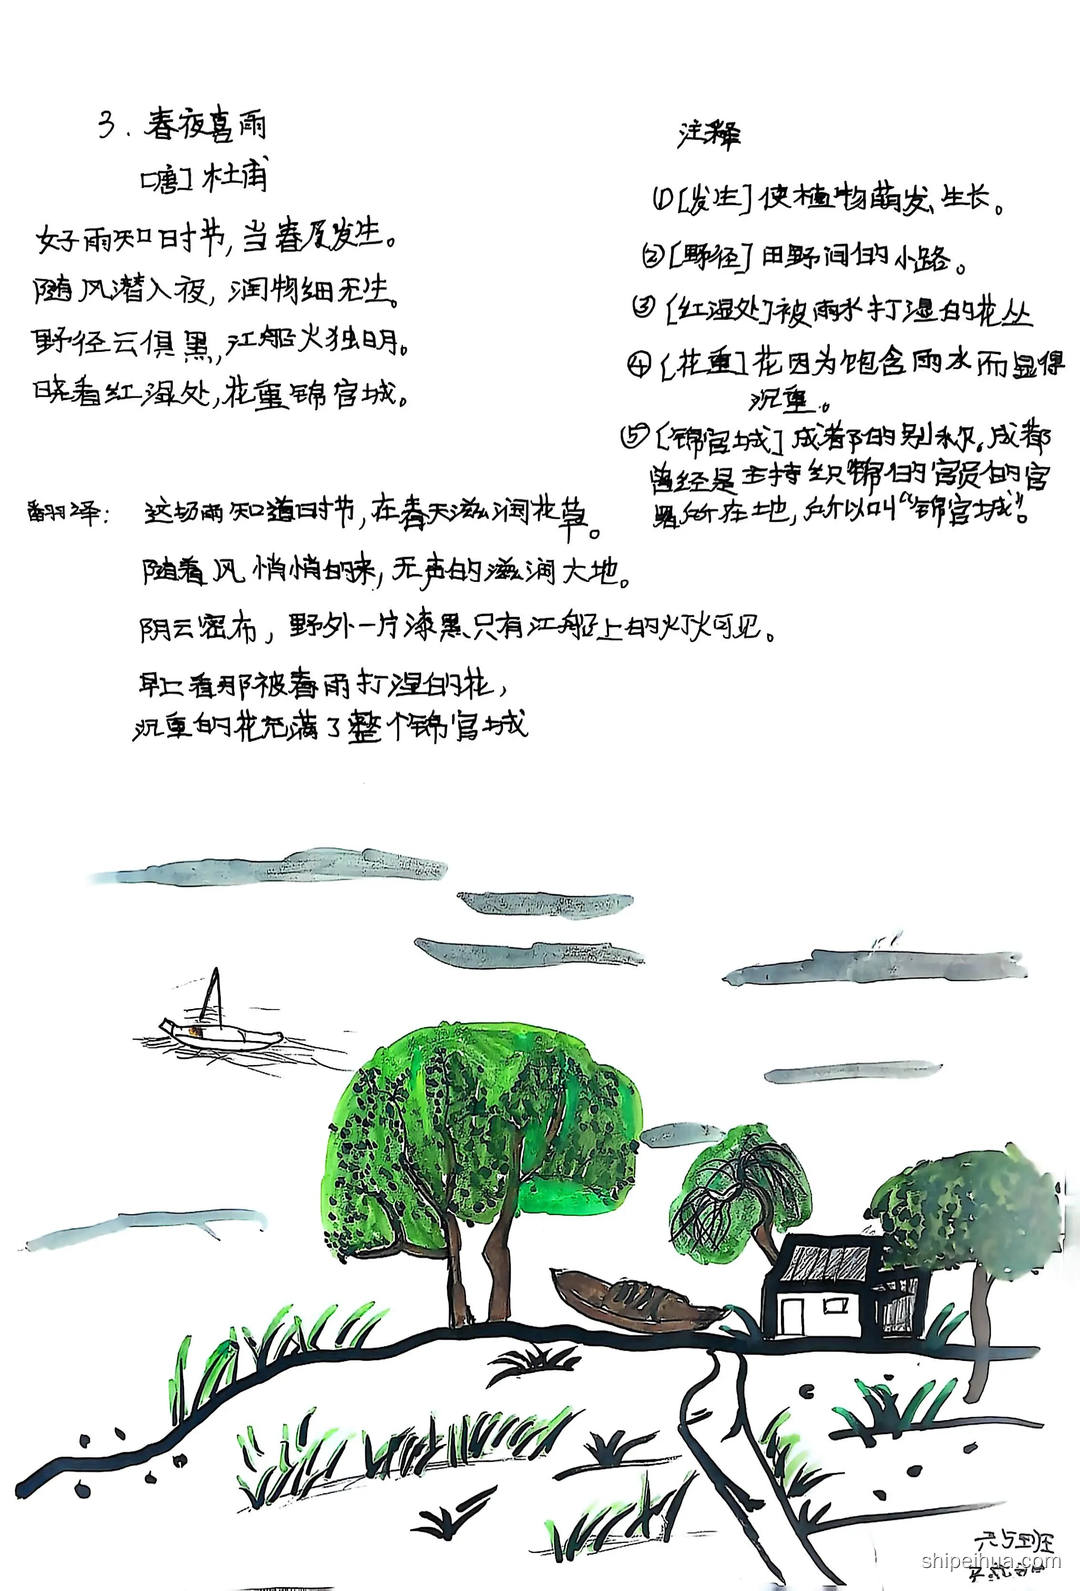 3. 春夜喜雨
[唐] 杜甫
好雨知时节,当春及发生。
随风潜入夜,润物细无生。
野径云俱黑,江船火独明。
晓看红湿处,花重锦官城。
注释
①[发生]使植物萌发、生长。
②[野径]田野间的小路。
③[红湿处]被雨水打湿的花丛
④[花重]花因为饱含雨水而显得
沉重。
⑤[锦官城]成都的别称。成都
曾经是主持织锦的官员的官
署所在地,所以叫“锦官城”。
翻译: 这场雨知道时节,在春天滋润花草。
随着风悄悄的来,无声的滋润大地。
阴云密布,野外一片漆黑只有江船上的灯火可见。
早上看那被春雨打湿的花,
沉重的花充满了整个锦官城
六5班
shipeihua.com